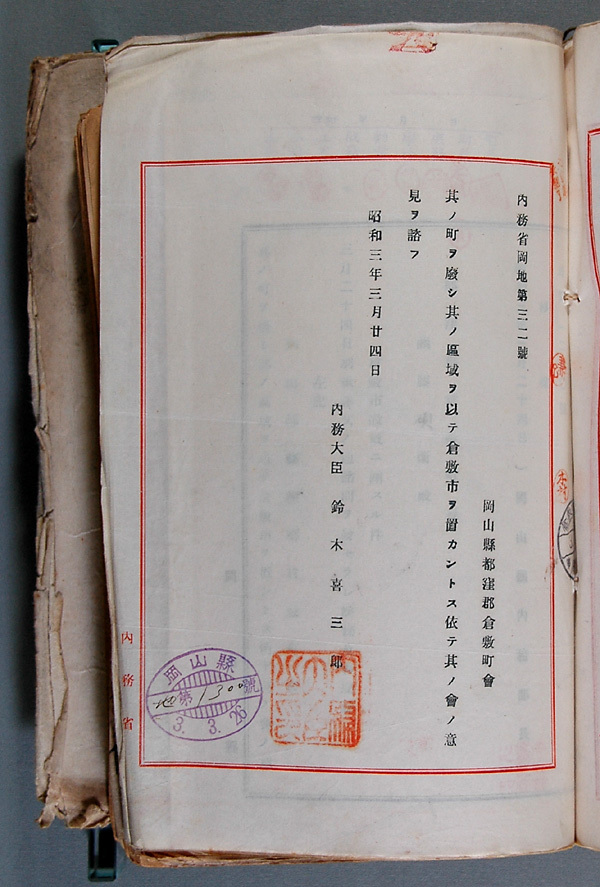 内務省岡地第三二號
岡山縣都窪郡倉敷町會
其ノ町ヲ廢シ其ノ區域ヲ以テ倉敷市ヲ置カントス依テ其ノ會ノ意
見ヲ諮フ
昭和三年三月廿四日
内務大臣 鈴木喜三郎
内務大臣之印
内務省
岡山縣
地第1300號
3.3.26